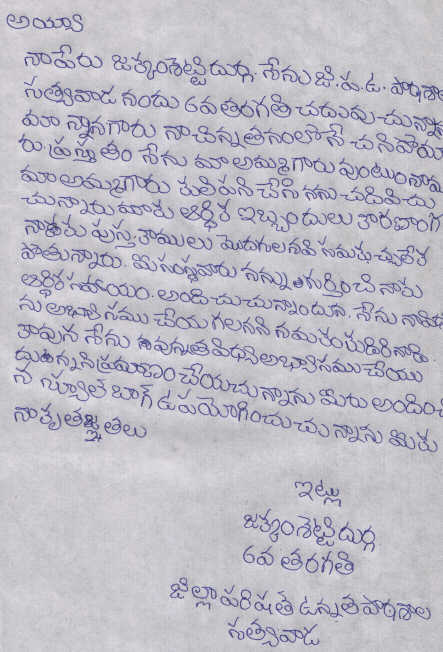 అయ్యా
నాపేరు జక్కంశెట్టి దుర్గ. నేను జి.ప.ఉ. పాఠశాల
సత్యవాడ నందు 6వ తరగతి చదువుచున్నాను
మా నాన్నగారు నా చిన్నతనంలోనే చనిపోయా
రు. ప్రస్తుతం నేను మా అమ్మగారు వుంటున్నాము
మా అమ్మగారు పనిచేసి నను చదివిచు
చున్నారు మాకు ఆర్థిక ఇబ్బందులు కారణంగా
నాకు పుస్తకాములు మొదగలనవి సమకుచ్చలేక
పోతున్నారు. మి సంస్థవారు నన్ను గుర్తించి నాకు
ఆర్థిక సహాయం. అందిచుచున్నాందున. నేను
ను అభ్యాసము చేయగలనని
కావున నేను అభ్యాసము చేయు
చేయచున్నాను మిరు అందించి
న స్కూల్ బాగ్ ఉపయోగించుచున్నాను మికు
నా కృతజ్ఞతలు
ఇట్లు
జక్కంశెట్టి దుర్గ
6వ తరగతి
జిల్లా పరిషత్ ఉన్నత పాఠశాల
సత్యవాడ